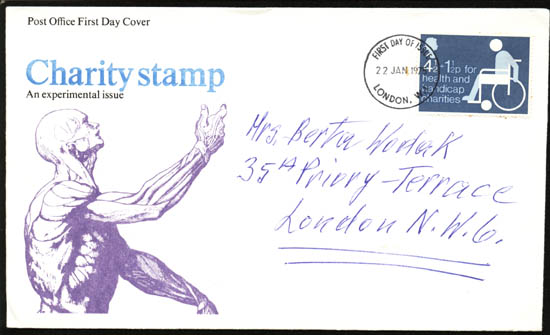 Post Office First Day Cover
Charity stamp
An experimental issue
FIRST DAY OF ISSUE
22 JAN 197
LONDON, W.
4½+1½p for
health and
handicap
charities
Mrs. Berta
35A Priory Terrace
London N.W.6.